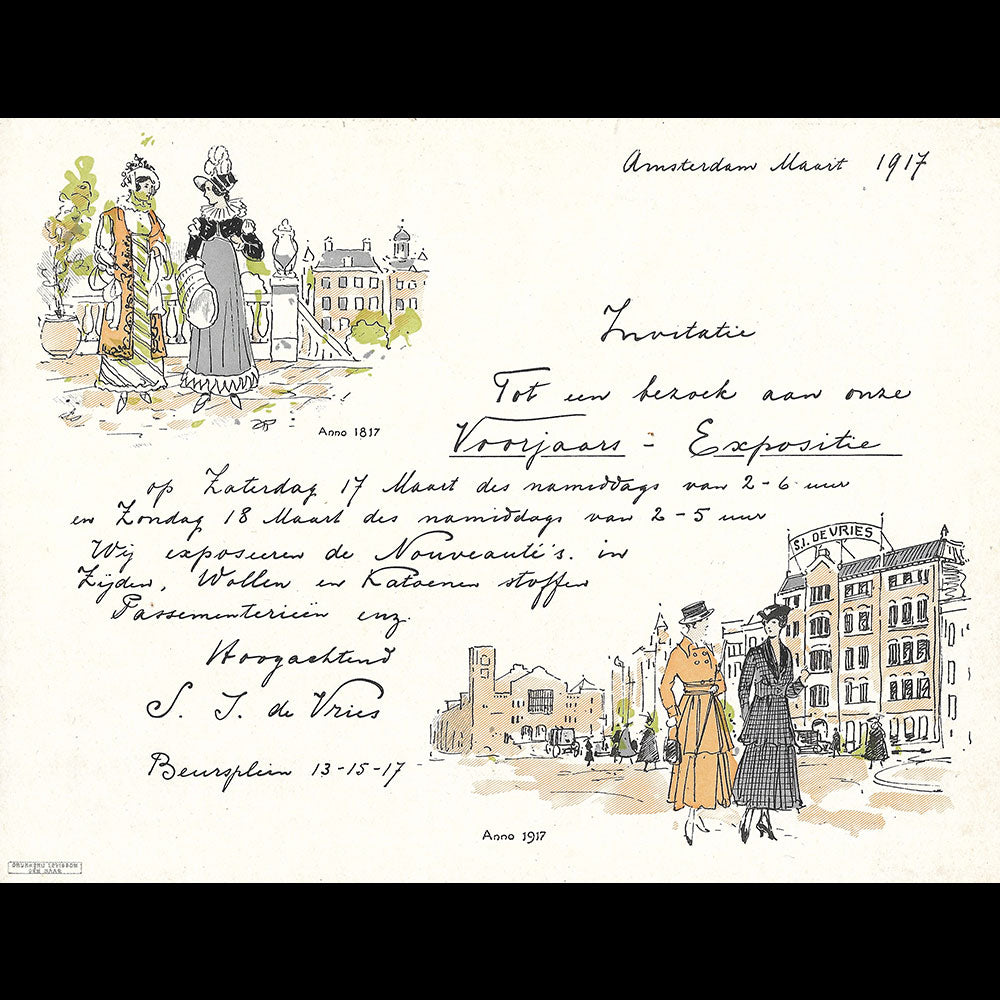 Amsterdam Maart 1917
Anno 1817
Invitatie
Tot een bezoek aan onze
Voorjaars - Expositie
op Zaterdag 17 Maart des namiddags van 2-6 uur
en Zondag 18 Maart des namiddags van 2-5 uur
Wij exposeeren de Nouveauté's in
Zijden, Wollen en Katoenen stoffen
Passementerieën enz.
Hoogachtend
S. I. de Vries
Beursplein 13-15-17
S.I. DE VRIES
Anno 1917
DRUKKERIJ LEVISSON
DEN HAAG